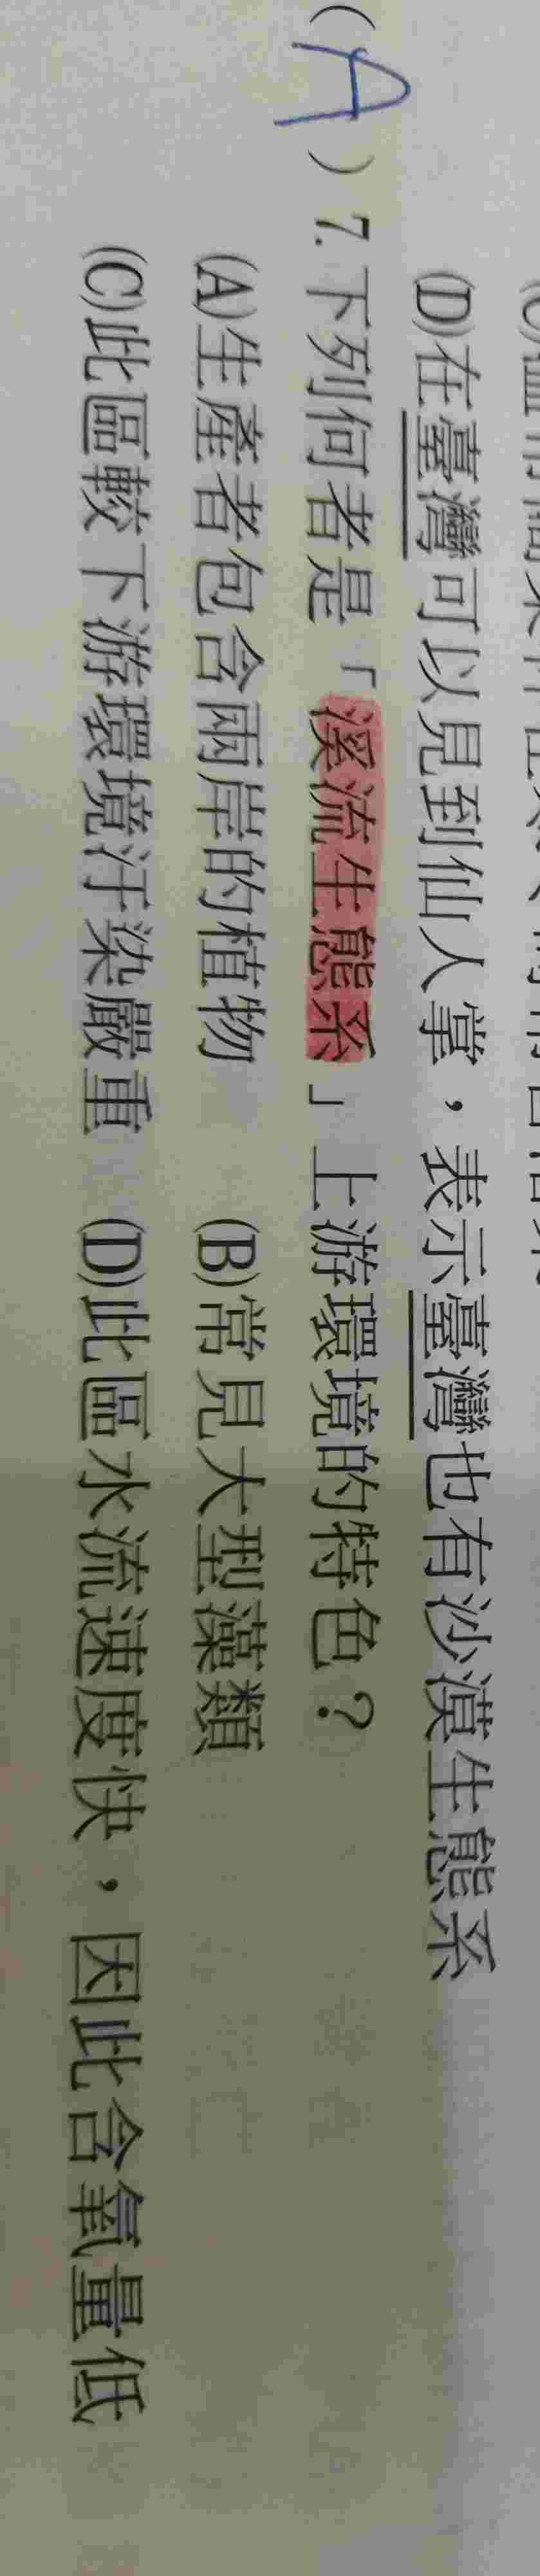 (D)在臺灣可以見到仙人掌，表示臺灣也有沙漠生態系
(A)7.下列何者是「溪流生態系」上游環境的特色？
(A)生產者包含兩岸的植物 (B)常見大型藻類
(C)此區較下游環境汙染嚴重 (D)此區水流速度快，因此含氧量低